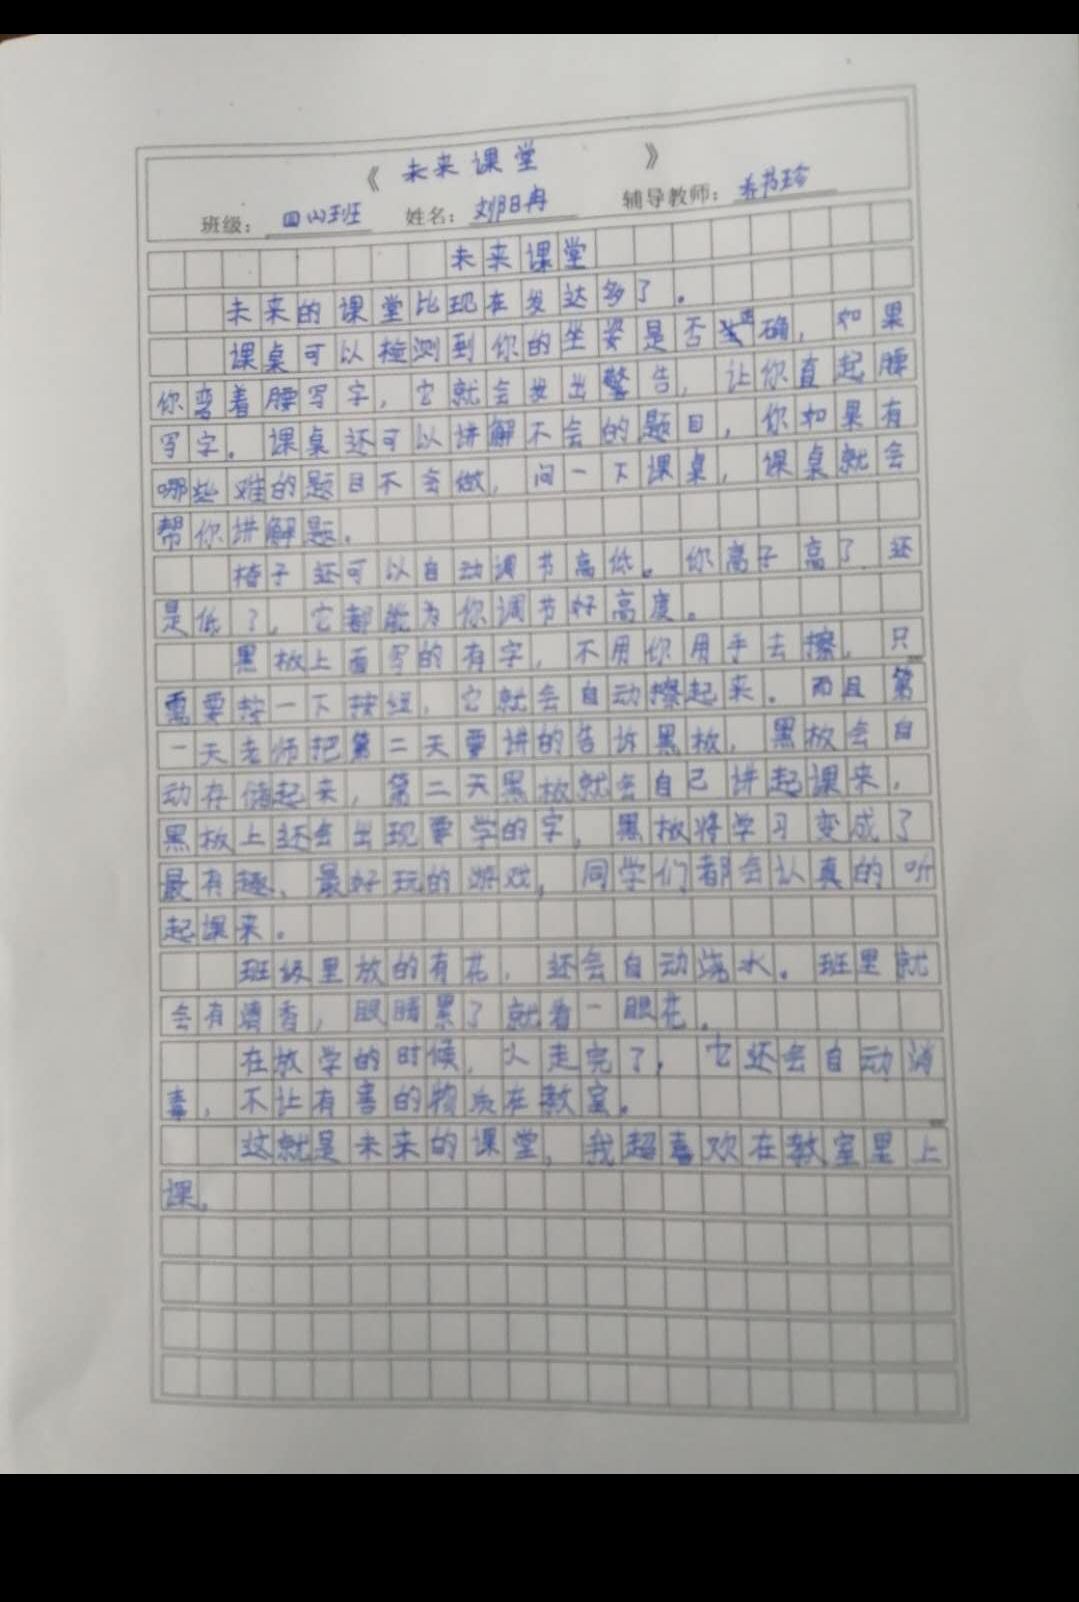 《 未来课堂 》
班级： 四(4)班 姓名： 刘阳冉 辅导教师：
未来课堂
未来的课堂比现在发达多了。
课桌可以检测到你的坐姿是否正确，如果
你弯着腰写字，它就会发出警告，让你直起腰
写字。课桌还可以讲解不会的题目，你如果有
哪些难的题目不会做，问一下课桌，课桌就会
帮你讲解题。
椅子还可以自动调节高低。你高子高了，还
是低了，它都能为你调节好高度。
黑板上面写的有字，不用你用手去擦，只
需要按一下按纽，它就会自动擦起来。而且第
一天老师把第二天要讲的告诉黑板，黑板会自
动存储起来，第二天黑板就会自己讲起课来，
黑板上还会出现要学的字，黑板将学习变成了
最有趣、最好玩的游戏，同学们都会认真的听
起课来。
班级里放的有花，还会自动浇水。班里就
会有清香，眼睛累了就看一眼花。
在放学的时候，人走完了，它还会自动消
毒，不让有害的物质在教室。
这就是未来的课堂，我超喜欢在教室里上
课。